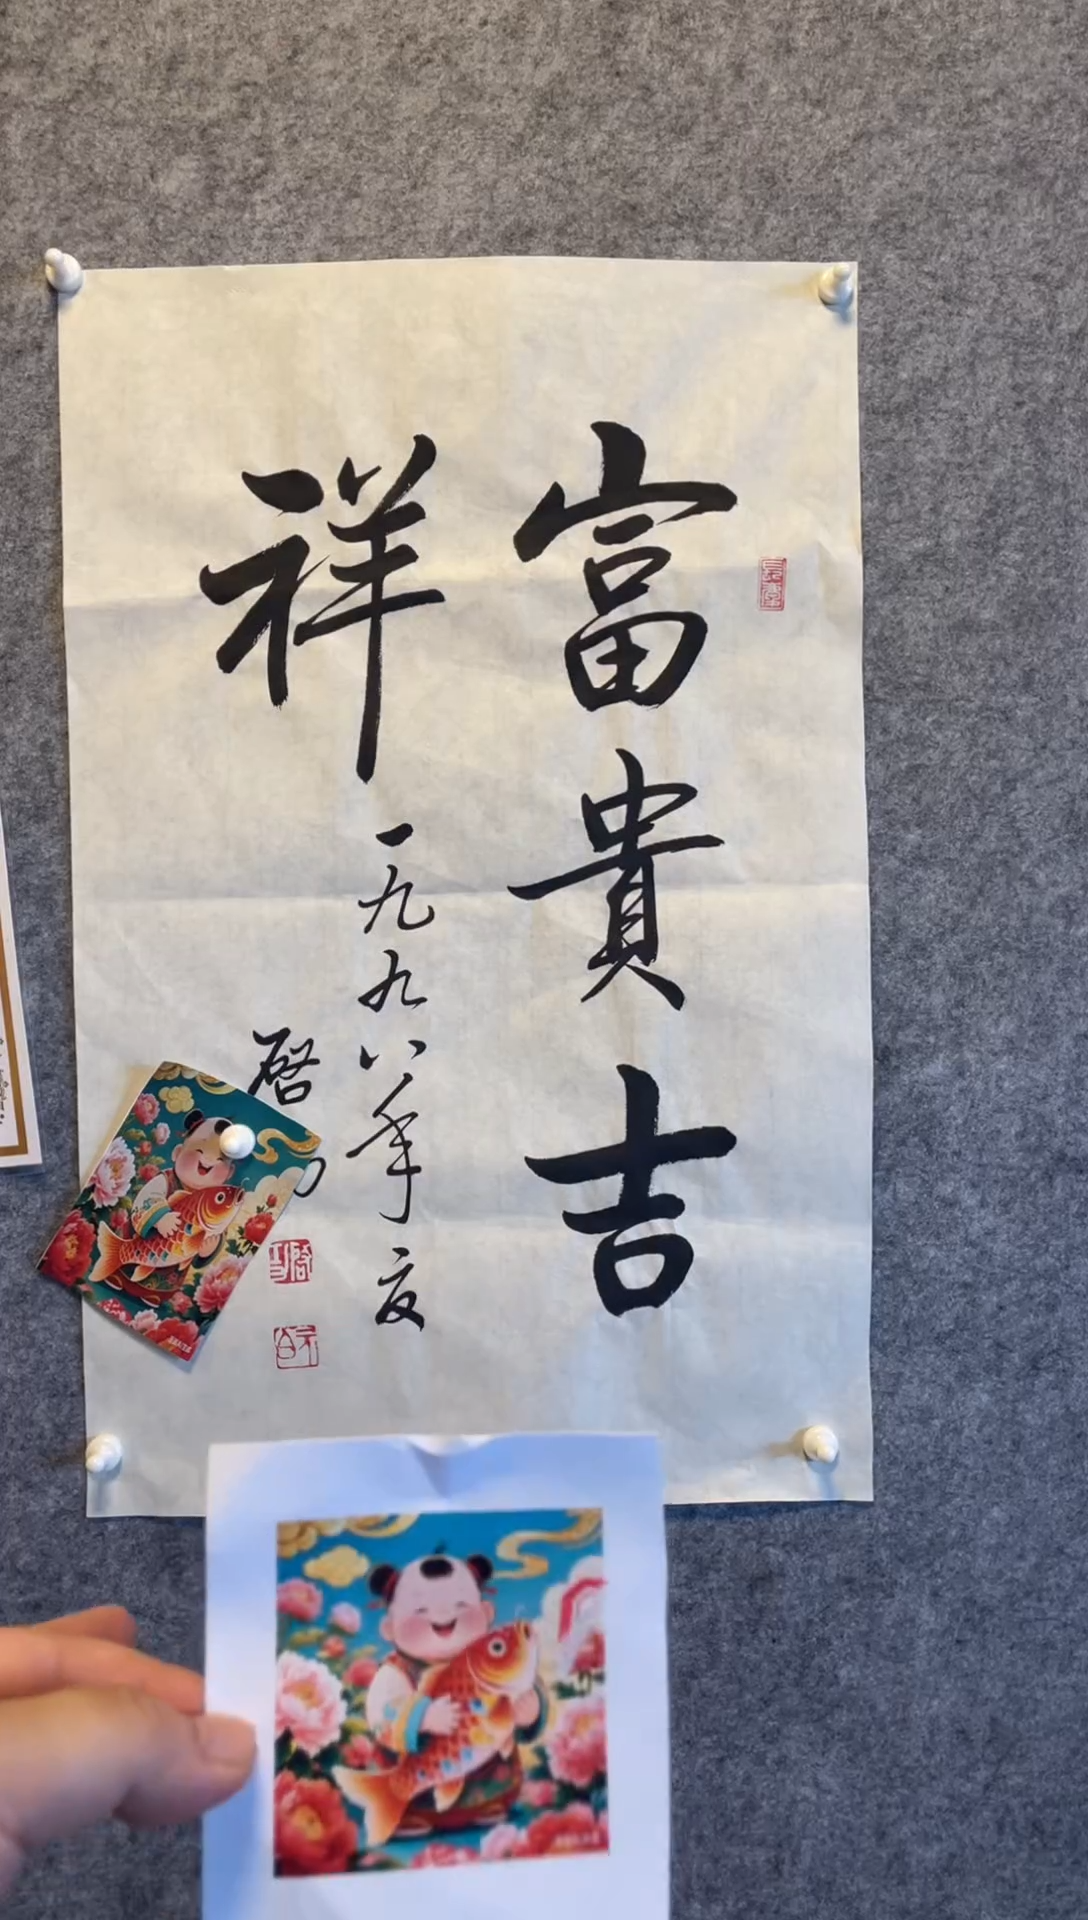 富貴吉
祥
一九九八年夏
啓功